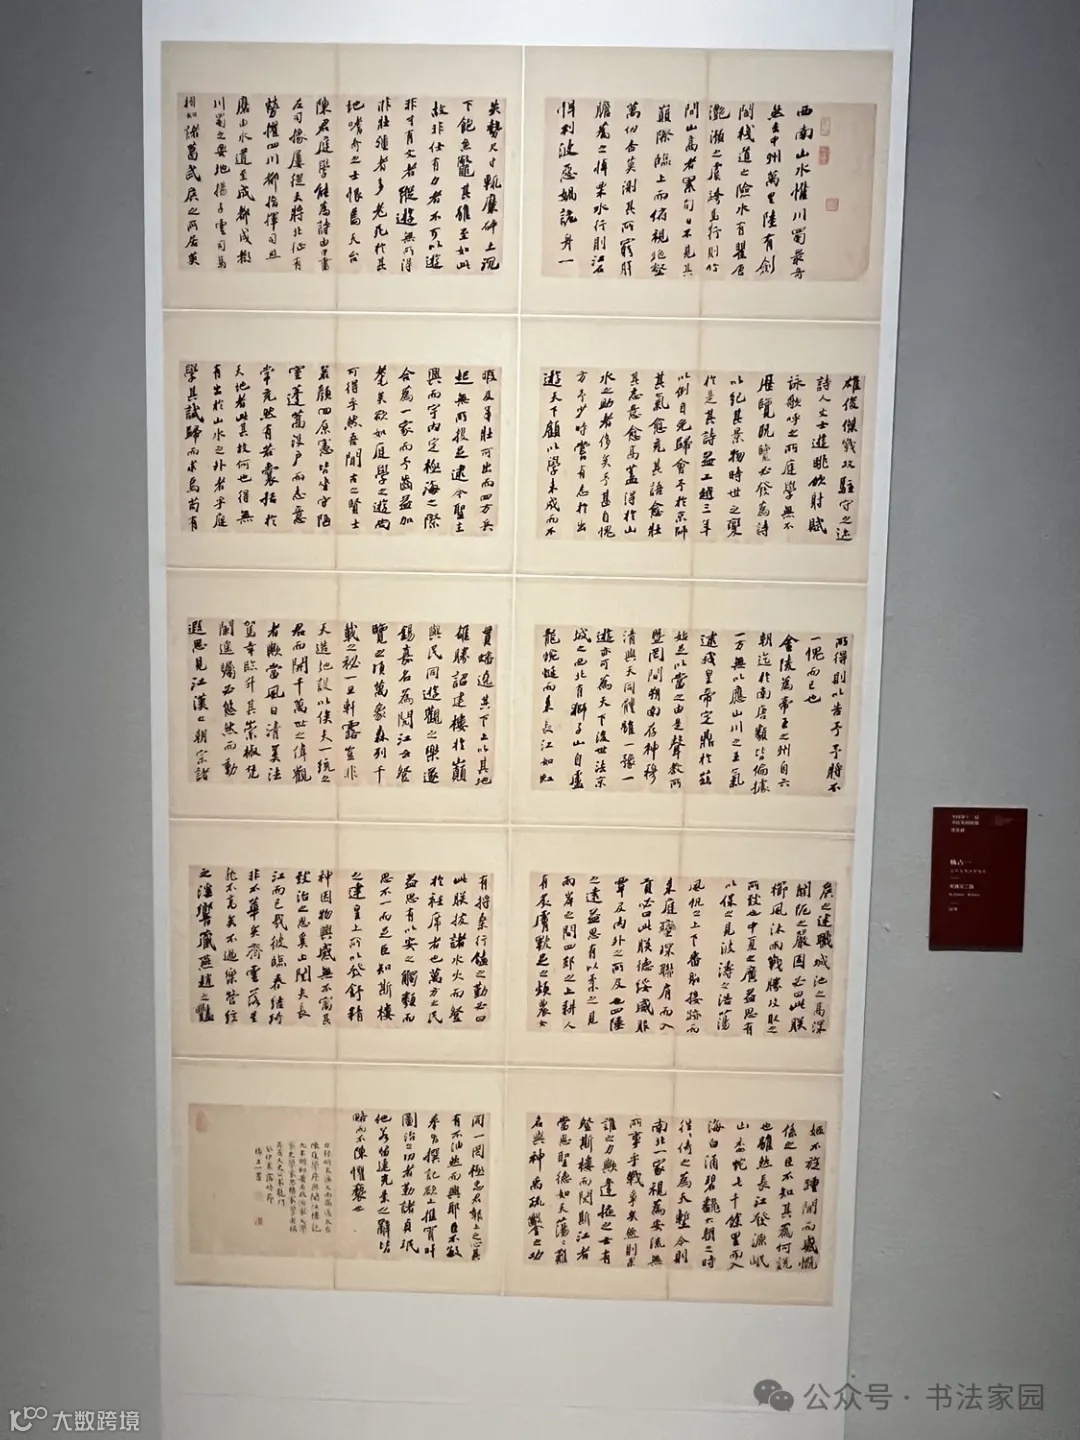 西南山水惟川蜀最奇
然去中州萬里陸有劍
閣棧道之險水有瞿唐
灧澦之虞跨馬行則竹
間山高者累旬日不見其
巔際臨上而俯視絕壑
萬仞杳莫測其所窮肝
膽為之悼栗水行則江石
悍利波惡渦詭舟一
失勢尺寸輒糜碎土沉
下飽魚鱉其難至如此
故非仕有力者不可以遊
非才有文者縱遊無所得
非壯強者多老死於其
地嗜奇之士恨焉天台
陳君庭學能為詩由中書
左司掾屢從大將北征有
勞擢四川都指揮司照
磨由水道至成都成都
川蜀之要地揚子雲司馬
相如諸葛武侯之所居英
雄俊傑戰攻駐守之迹
詩人文士遊眺飲射賦
詠歌呼之所庭學無不
歷覽既覽必發為詩
以紀其景物時世之變
於是其詩益工越三年
以例自免歸會予於京師
其氣愈充其語愈壯
其志意愈高蓋得於山
水之助者侈矣予甚自愧
方予少時嘗有志於出
遊天下顧以學未成而不
暇及年壯可出而四方兵
起無所投足逮今聖主
興而宇內定極海之際
合為一家而予齒益加
耄矣欲如庭學之遊尚
可得乎然吾聞古之賢士
若顏回原憲皆坐守陋
室蓬蒿沒戶而志意
常充然有若囊括於
天地者此其故何也得無
有出於山水之外者乎庭
學其試歸而求焉苟有
所得則以告予予將不
一愧而已也
金陵為帝王之州自六
朝迄於南唐類皆偏據
一方無以應山川之王氣
逮我皇帝定鼎於茲
始足以當之由是聲教所
暨罔間朔南存神穆
清與天同體雖一豫一
遊亦可為天下後世法京
城之西北有獅子山自盧
龍蜿蜒而來長江如虹
貫蟠遶其下上以其地
雄勝詔建樓於巔
與民同遊觀之樂遂
錫嘉名為閱江云登
覽之頃萬象森列千
載之祕一旦軒露豈非
天造地設以俟大一統之
君而開千萬世之偉觀
者歟當風日清美法
駕幸臨升其崇椒憑
闌遙矚必悠然而動
遐思見江漢之朝宗諸
侯之述職城池之高深
關阨之嚴固必曰此朕
櫛風沐雨戰勝攻取之
所致也中夏之廣益思有
以保之見波濤之浩蕩
風帆之上下番舶接跡而
來庭蠻琛聯肩而入
貢必曰此朕德綏威服
覃及內外之所及也四陲
之遠益思有以柔之見
兩岸之間四郊之上耕人
有炙膚皸足之煩農女
有捋桑行饁之勤必曰
此朕拔諸水火而登
於衽席者也萬方之民
益思有以安之觸類而
思不一而足臣知斯樓
之建皇上所以發舒精
神因物興感無不寓其
致治之思奚止閱夫長
江而已哉彼臨春結綺
非不華矣齊雲落星
非不高矣不過樂管絃
之淫響藏燕趙之艷
姬不旋踵間而感慨
係之臣不知其為何說
也雖然長江發源岷
山委蛇七千餘里而入
海白涌碧翻六朝之時
往往倚之為天塹今則
南北一家視為安流無
所事乎戰爭矣然則果
誰之力歟逢掖之士有
登斯樓而閱斯江者
當思聖德如天蕩蕩難
名與神禹疏鑿之功
同一罔極忠君報上之心其
有不油然而興耶臣不敏
奉旨撰記欲上推宵旰
圖治之功者勤諸貞珉
他若留連光景之辭皆
略而不陳懼褻也
陳庭學序與閱江樓記
公众号·书法家园
大数跨境